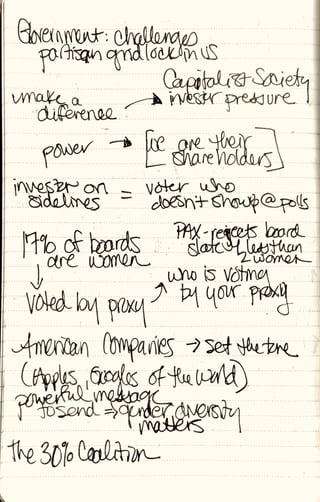 Government: challenges
partisan gridlock in US
Capitalist Society
make a
difference → investor pressure
power → [we are their
shareholders]
investor on = voter who
sidelines doesn't show up @ polls
17% of boards
are women
PAX - rejects board
slate if less than
2 women
↓
voted by proxy ↗ who is voting
by your proxy
American Companies → set the tone
(Apples, Googles of the world)
powerful message
to send ⇒ gender diversity
matters
the 30% Coalition